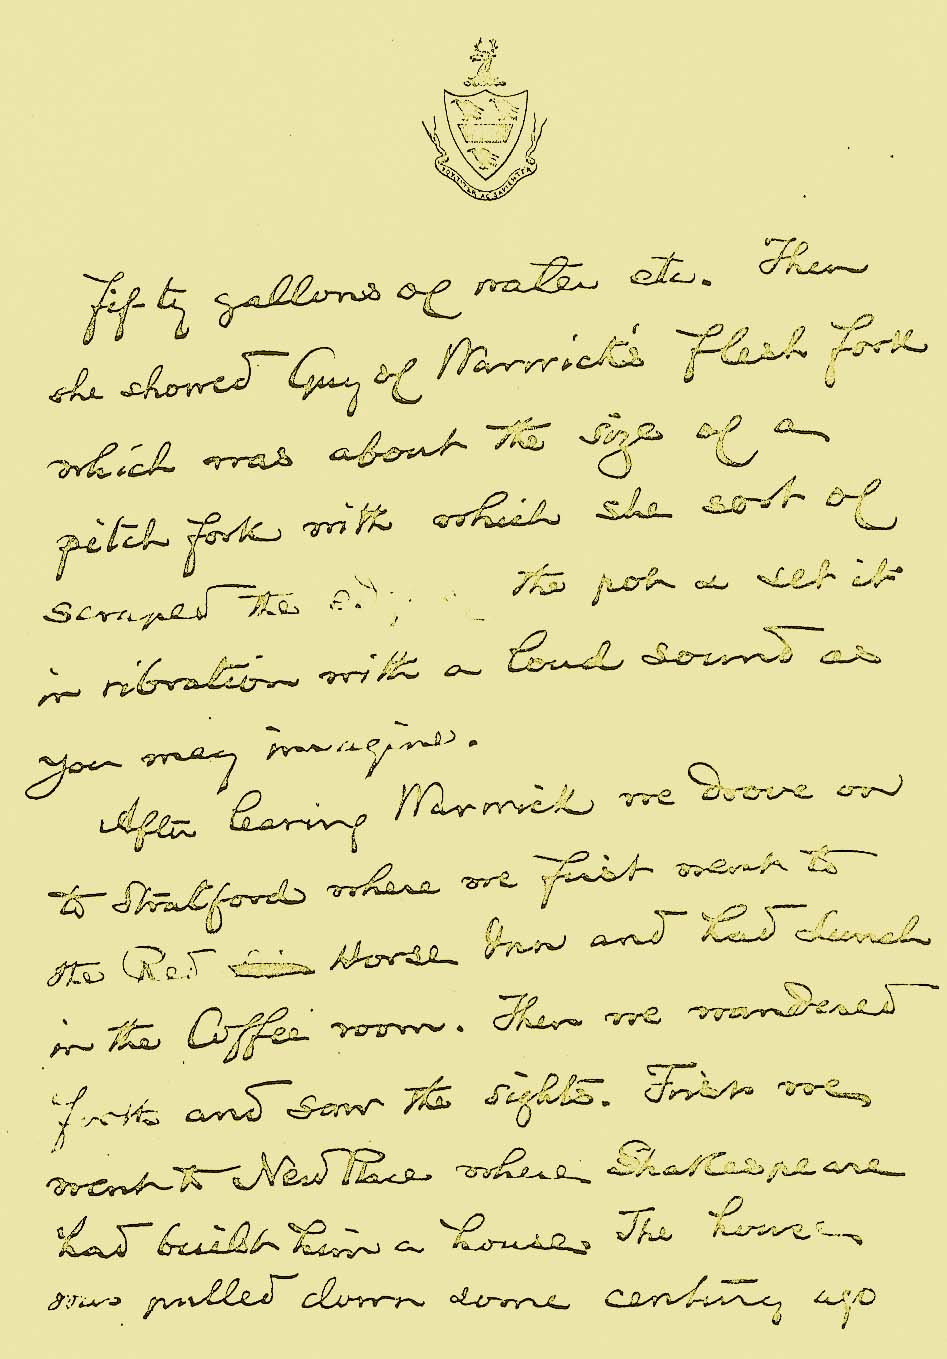 FORTITER AC SAPIENTER
fifty gallons of water etc. Then
she showed Guy of Warwick's flesh fork
which was about the size of a
pitch fork with which she sort of
scraped the the pot & set it
in vibration with a loud sound as
you may imagine.
After leaving Warwick we drove on
to Stratford where we first went to
the Red Horse Inn and had lunch
in the Coffee room. Then we wandered
forth and saw the sights. First we
went to New Place where Shakespeare
had built him a house. The house
was pulled down some century ago